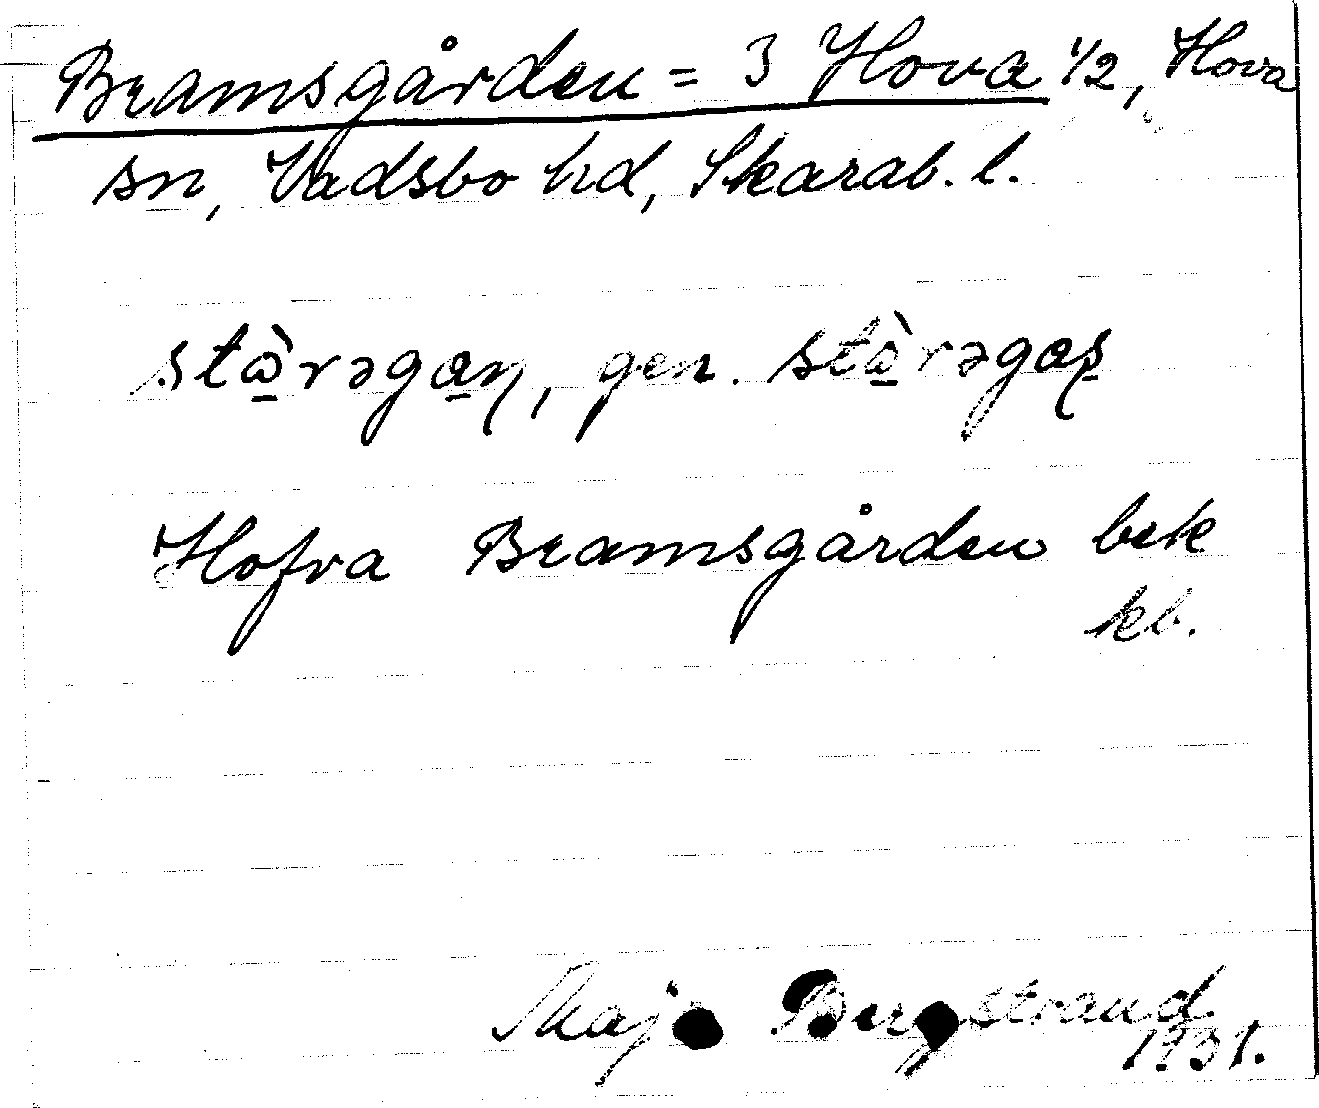 Bramsgården = 3 Hova 1/2, Hova
sn, Vadsbo hd, Skarab. l.
stɷ̠̀rəga̠ɳ, gen. stɷ̠̀rəgaʂ
Hofra Bramsgården bek
kb.
Maja Bergstrand
1931.